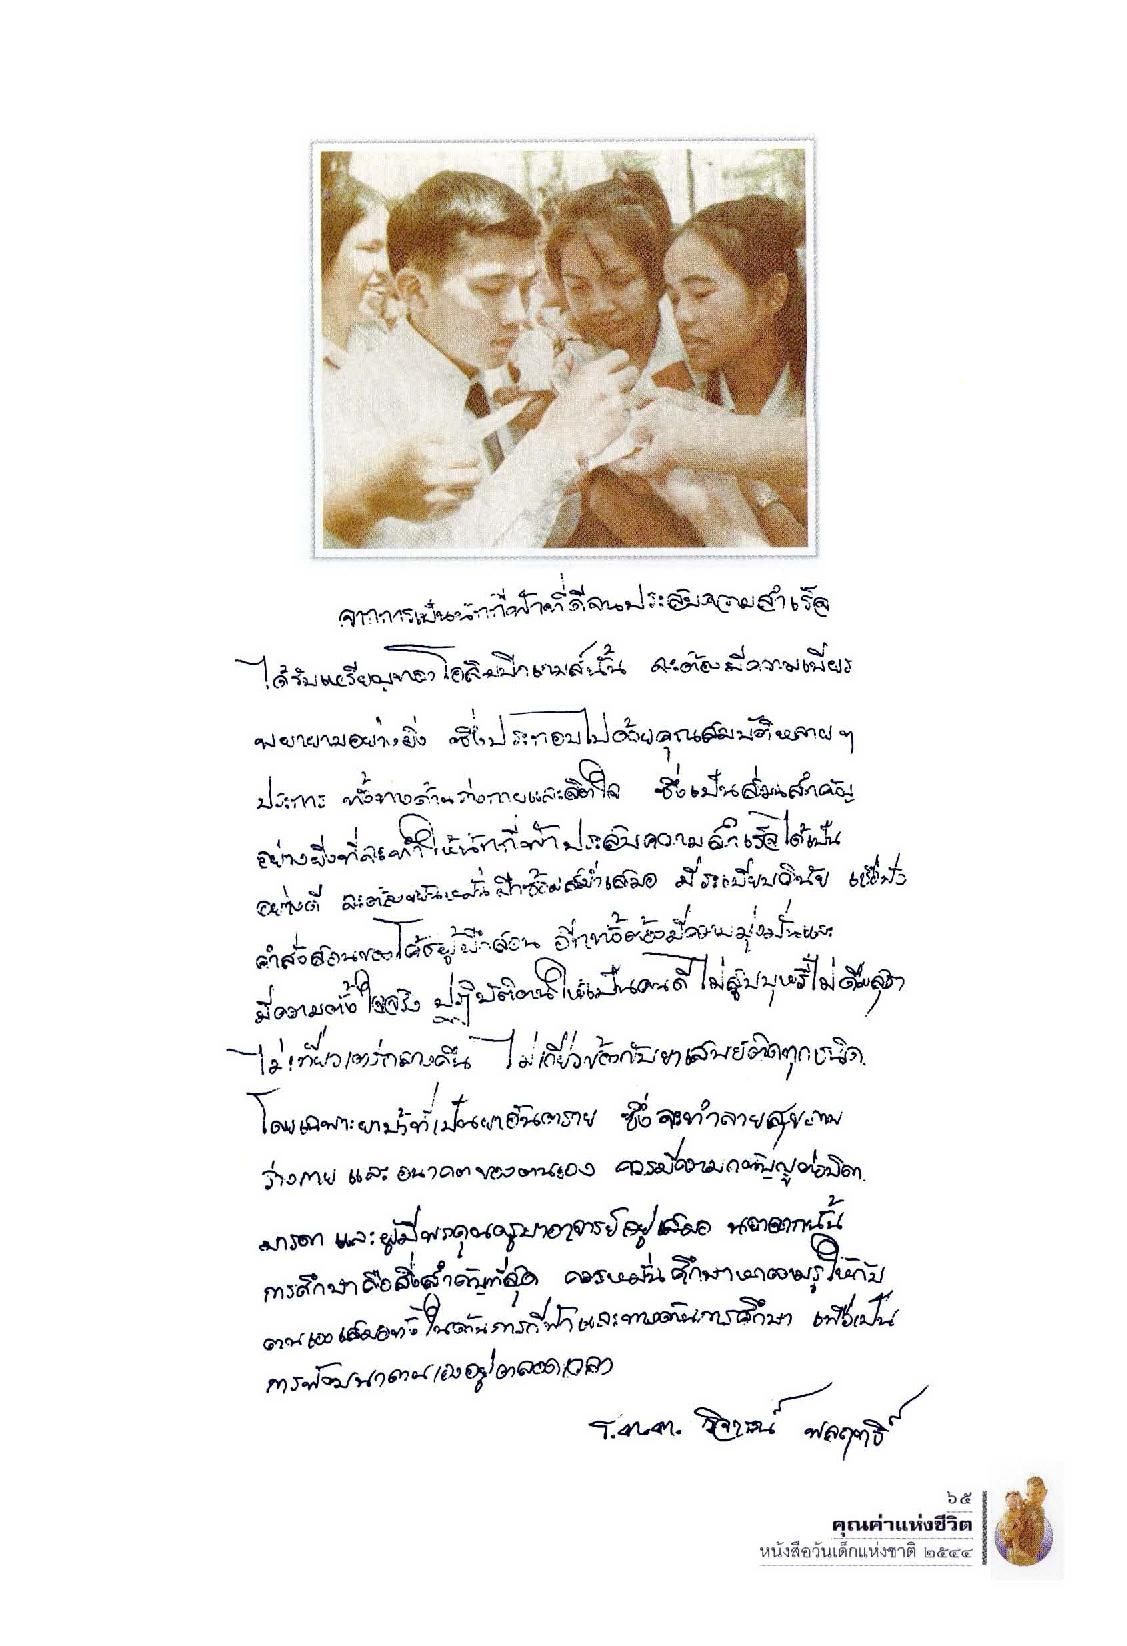 จากการเป็นนักกีฬาที่ดีจนประสบความสำเร็จ
ได้รับเหรียญทองโอลิมปิกเกมส์นั้น จะต้องมีความเพียร
พยายามอย่างยิ่ง ซึ่งประกอบไปด้วยคุณสมบัติหลายๆ
ประการ ทั้งทางด้านร่างกายและจิตใจ ซึ่งเป็นส่วนสำคัญ
อย่างยิ่งที่จะทำให้นักกีฬาประสบความสำเร็จได้เป็น
อย่างดี จะต้องขยันหมั่นฝึกซ้อมสม่ำเสมอ มีระเบียบวินัย เชื่อฟัง
คำสั่งสอนของโค้ชผู้ฝึกสอน อีกทั้งต้องมีความมุ่งมั่นและ
มีความตั้งใจจริง ปฏิบัติตนให้เป็นคนดี ไม่สูบบุหรี่ไม่ดื่มสุรา
ไม่เที่ยวเตร่กลางคืน ไม่เกี่ยวข้องกับยาเสพย์ติดทุกชนิด
โดยเฉพาะยาบ้าที่เป็นยาอันตราย ซึ่งจะทำลายสุขภาพ
ร่างกาย และอนาคตของตนเอง ควรมีความกตัญญูต่อบิดา
มารดา และผู้มีพระคุณครูบาอาจารย์อยู่เสมอ นอกจากนั้น
การศึกษาคือสิ่งสำคัญที่สุด ควรหมั่นศึกษาหาความรู้ให้กับ
ตนเองเสมอทั้งในด้านการกีฬาและทางด้านการศึกษา เพื่อเป็น
การพัฒนาตนเองอยู่ตลอดเวลา
ร.ต.ต. วิจารณ์ พลฤทธิ์
๖๕
คุณค่าแห่งชีวิต
หนังสือวันเด็กแห่งชาติ ๒๕๔๔